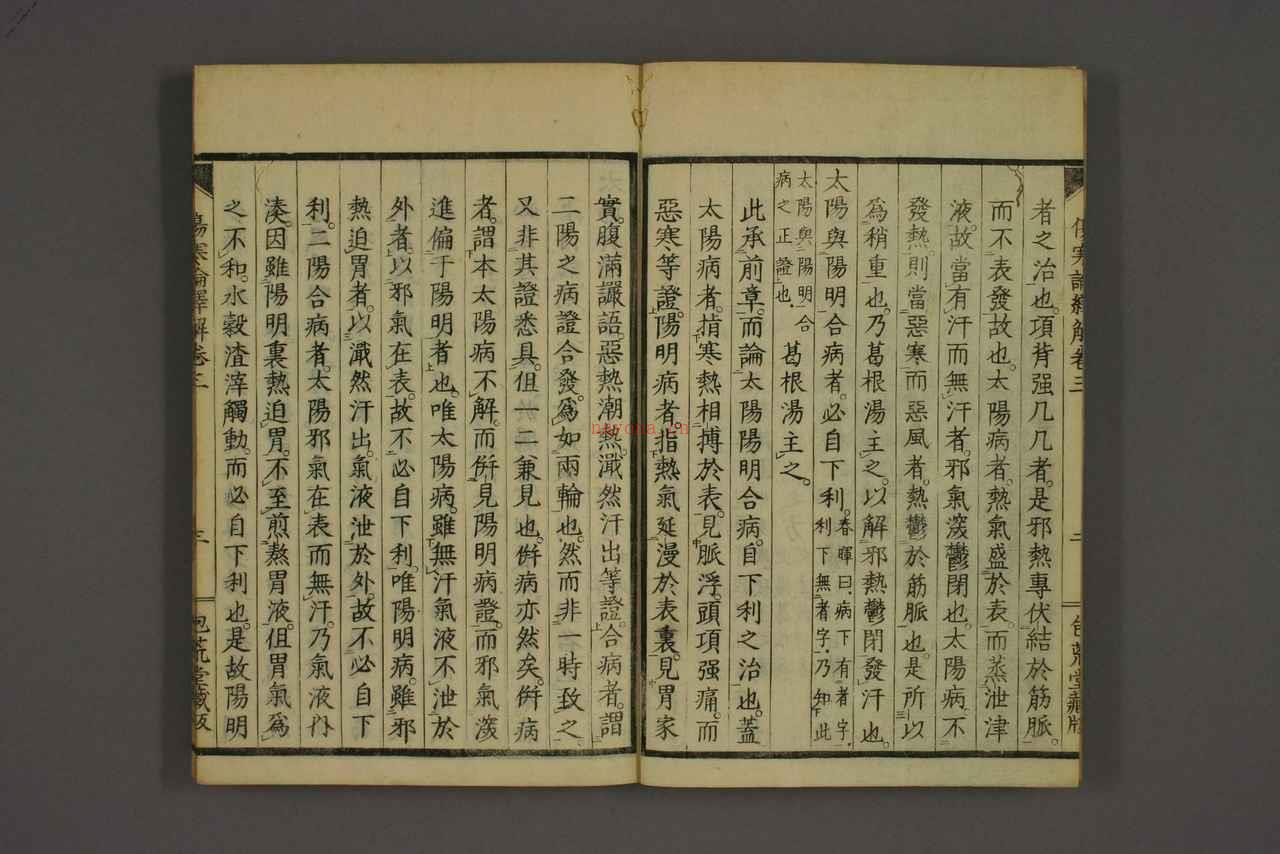 傷寒論繹解卷三 二 包荒堂藏版
者之治也。項背强几几者。是邪熱專伏結於筋脈。
而不表發故也。太陽病者。熱氣盛於表。而蒸泄津
液。故當有汗而無汗者。邪氣深鬱閉也。太陽病不
發熱。則當惡寒而惡風者。熱鬱於筋脈也。是所以
爲稍重也。乃葛根湯主之。以解邪熱鬱閉發汗也。
太陽與陽明合病者。必自下利。春暉曰、病下有者字、
利下無者字、乃知此
太陽與陽明合
病之正證也、
葛根湯主之。
此承前章。而論太陽陽明合病。自下利之治也。蓋
太陽病者。指寒熱相搏於表。見脈浮。頭項强痛。而
惡寒等證。陽明病者指熱氣延漫於表裏。見胃家
實。腹滿讝語。惡熱潮熱。濈然汗出等證。合病者。謂
二陽之病證合發。爲如兩輪也。然而非一時致之。
又非其證悉具。但一二兼見也。倂病亦然矣。倂病
者。謂本太陽病不解。而倂見陽明病證。而邪氣深
進偏于陽明者也。唯太陽病。雖無汗氣液不泄於
外者。以邪氣在表。故不必自下利。唯陽明病。雖邪
熱迫胃者。以濈然汗出。氣液泄於外。故不必自下
利。二陽合病者。太陽邪氣在表而無汗。乃氣液內
湊。因雖陽明裏熱迫胃。不至煎熬胃液。但胃氣爲
之不和。水穀渣滓觸動。而必自下利也。是故陽明
傷寒論繹解卷三 三 包荒堂藏版